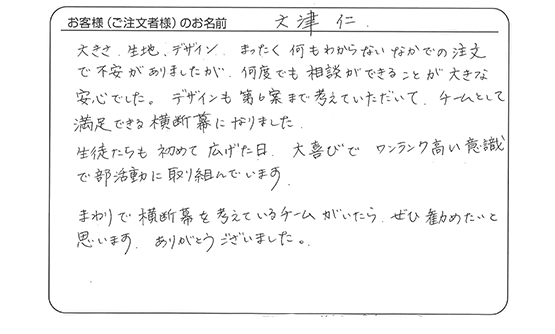 お客様（ご注文者様）のお名前 文津 仁
大きさ、生地、デザイン、まったく何もわからないなかでの注文
で不安がありましたが、何度でも相談ができることが大きな
安心でした。デザインも第6案まで考えていただいて、チームとして
満足できる横断幕になりました。
生徒たちも初めて広げた日、大喜びで ワンランク高い意識
で部活動に取り組んでいます。
まわりで横断幕を考えているチームがいたら、ぜひ勧めたいと
思います。ありがとうございました。